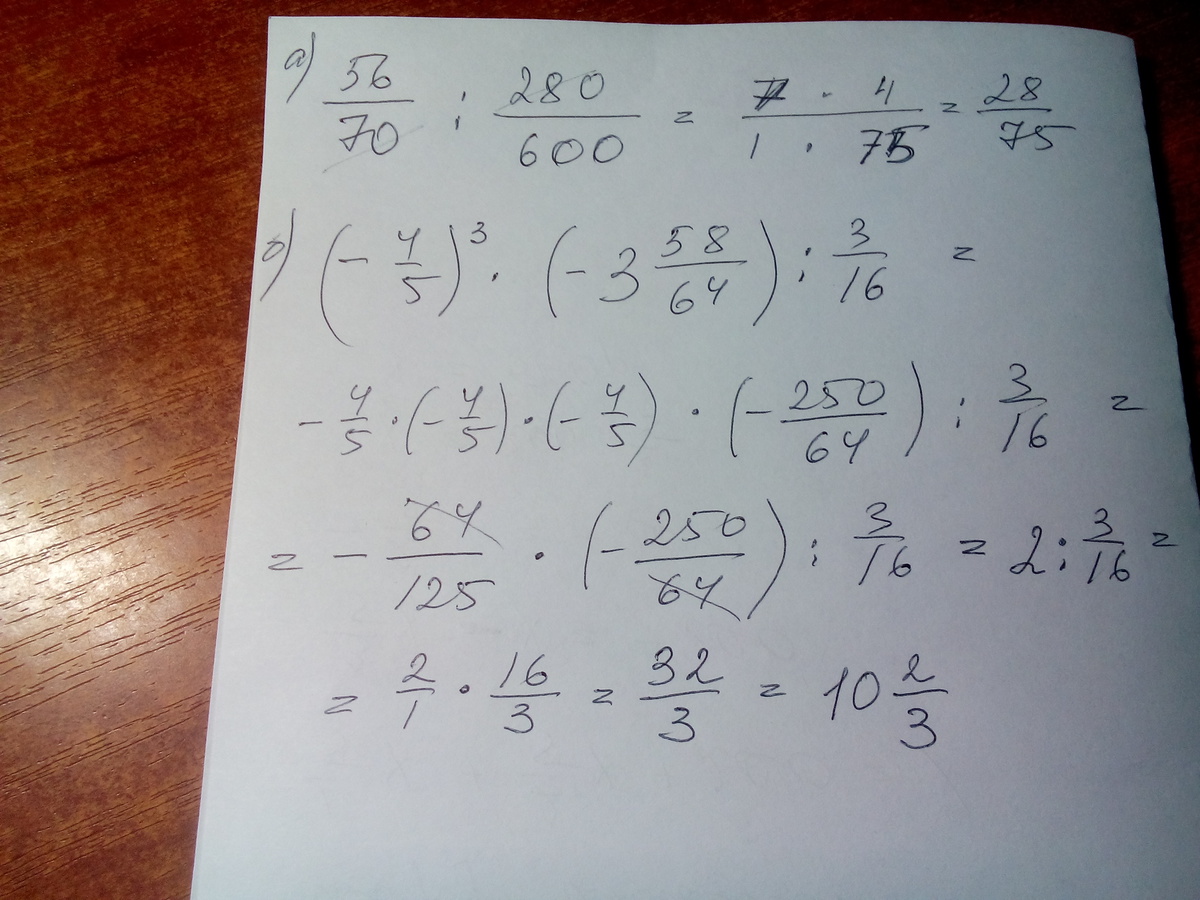 а) 56/70 : 280/600 = 7 · 4 / 1 · 75 = 28/75
б) (- 4/5)³ · (- 3 58/64) : 3/16 =
- 4/5 · (- 4/5) · (- 4/5) · (- 250/64) : 3/16 =
= - 64/125 · (- 250/64) : 3/16 = 2 : 3/16 =
= 2/1 · 16/3 = 32/3 = 10 2/3